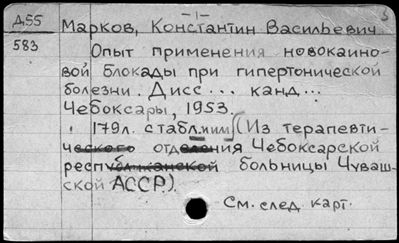 -1-
5
Д55
583
Марков, Константин Васильевич
Опыт применения новокаино-
вой блокады при гипертонической
болезни. Дисс... канд...
Чебоксары, 1953.
179л. с табл. иил. (Из терапевти-
ческого отделения Чебоксарской
республиканской больницы Чуваш-
ской АССР).
См. след карт.